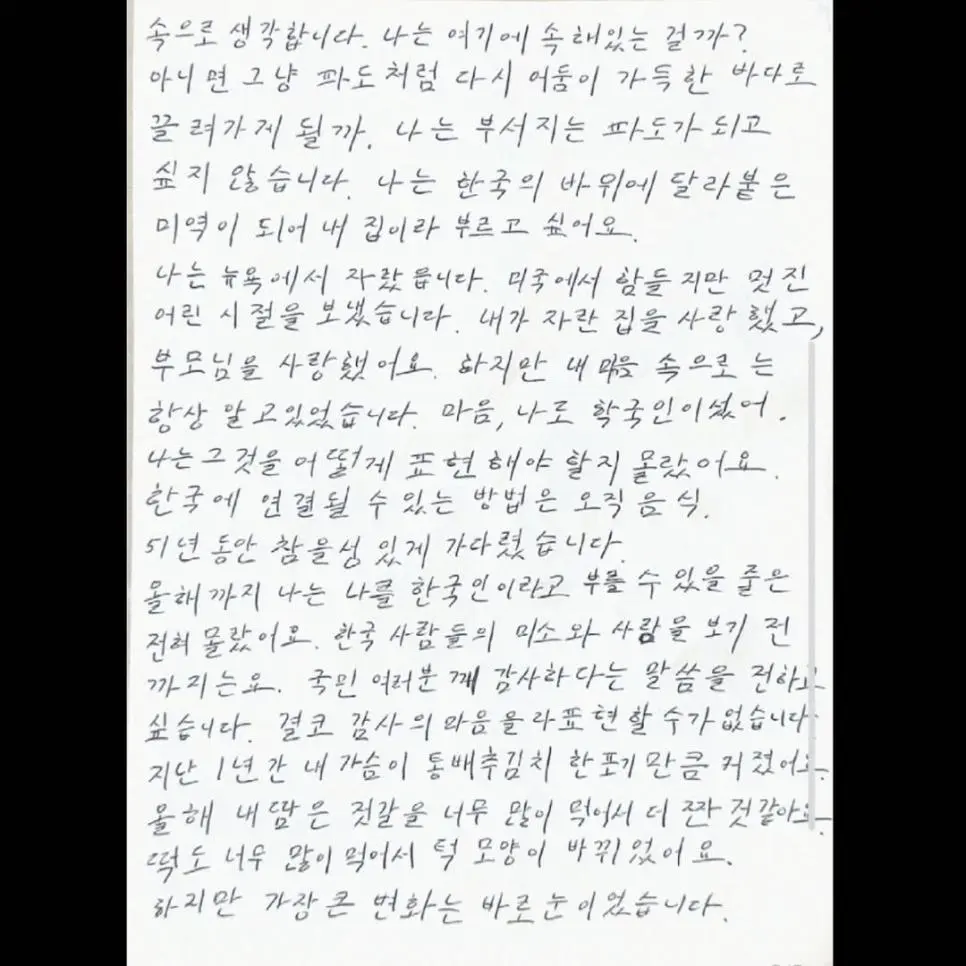 속으로 생각합니다. 나는 여기에 속해있는 걸까?
아니면 그냥 파도처럼 다시 어둠이 가득한 바다로
끌려가게 될까. 나는 부서지는 파도가 되고
싶지 않습니다. 나는 한국의 바위에 달라붙은
미역이 되어 내 집이라 부르고 싶어요.
나는 뉴욕에서 자랐읍니다. 미국에서 함들지만 멋진
어린 시절을 보냈습니다. 내가 자란 집을 사랑했고,
부모님을 사랑했어요. 하지만 내 마음 속으로는
항상 알고있었습니다. 마음, 나도 학국인이셨어.
나는 그것을 어떻게 표현해야 할지 몰랐어요.
한국에 연결될 수 있는 방법은 오직 음식.
51년 동안 참을성 있게 가다렸습니다.
올해까지 나는 나를 한국인이라고 부를 수 있을 줄은
전혀 몰랐어요. 한국 사람들의 미소와 사람을 보기 전
까지는요. 국민 여러분께 감사하다는 말씀을 전하고
싶습니다. 결코 감사의 마음을 라표현할 수가 없습니다.
지난 1년간 내 가슴이 통배추김치 한포기만큼 커졌어요.
올해 내 땀은 젓갈을 너무 많이 먹어서 더 짠 것 같아요.
떡도 너무 많이 먹어서 턱 모양이 바뀌었어요.
하지만 가장 큰 변화는 바로 눈이었습니다.